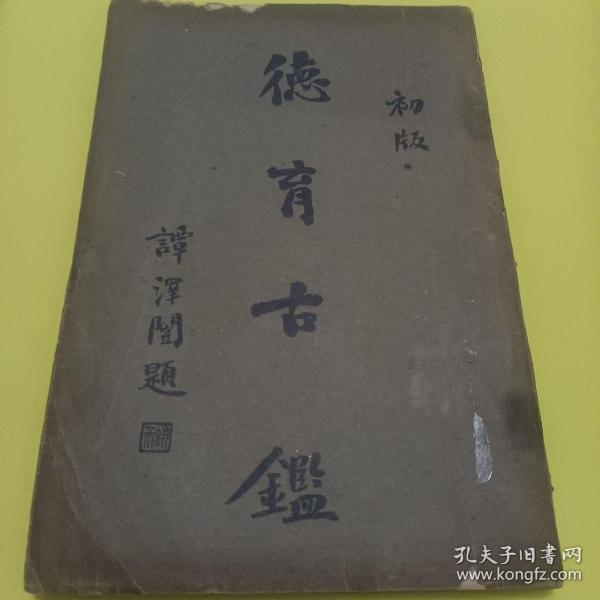 初版
德育古鑑
譚澤闓題
孔夫子旧书网
www.kongfz.com